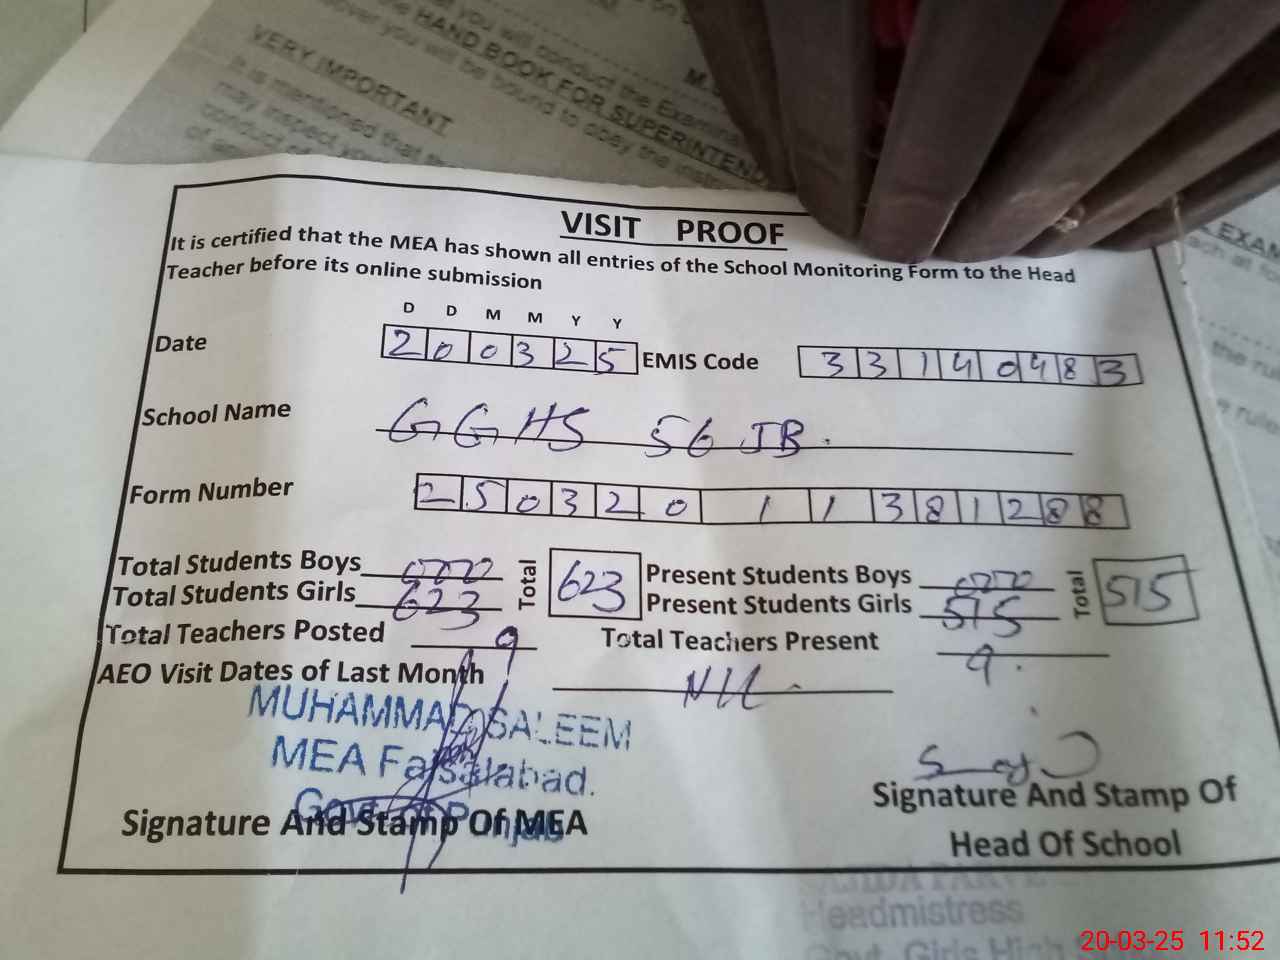 at you will conduct the Examina
the HAND BOOK FOR SUPERINTEND
you will be bound to obey the instr
VERY IMPORTANT
It is mentioned that
may inspect you
conduct of
VISIT PROOF
It is certified that the MEA has shown all entries of the School Monitoring Form to the Head
Teacher before its online submission
D D M M Y Y
Date 2 0 0 3 2 5 EMIS Code 3 3 1 4 0 4 8 3
School Name GGHS 56 JB.
Form Number 2 5 0 3 2 0 1 1 3 8 1 2 8 8
Total Students Boys 0000 Total 623 Present Students Boys 0000 Total 515
Total Students Girls 623 Present Students Girls 515
Total Teachers Posted 9 Total Teachers Present 9.
AEO Visit Dates of Last Month Nil
MUHAMMAD SALEEM
MEA Faisalabad.
Govt. of Punjab
Signature And Stamp Of MEA
Signature And Stamp Of
Head Of School
Headmistress
Govt. Girls High
20-03-25 11:52